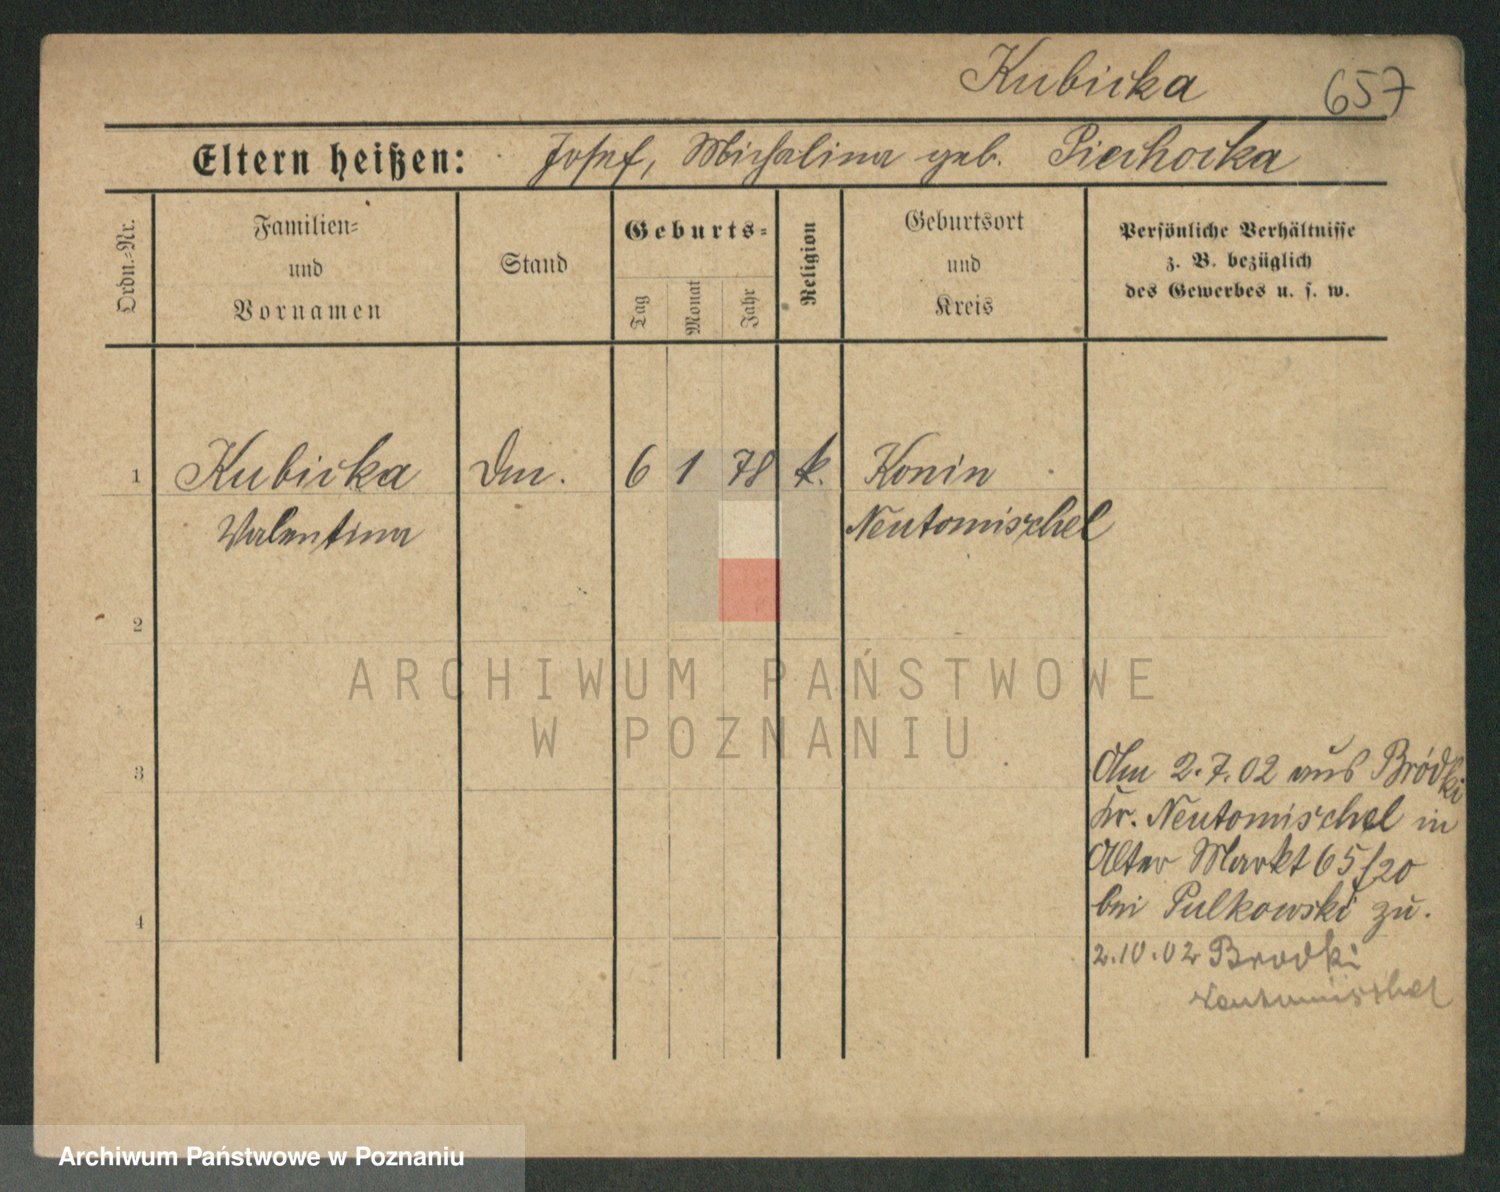 Kubicka 657
Eltern heißen: Josef, Michalina geb. Piechocka
Ordn.-Nr.
Familien-
und
Vornamen
Stand
Geburts-
Tag
Monat
Jahr
Religion
Geburtsort
und
Kreis
Persönliche Verhältnisse
z. B. bezüglich
des Gewerbes u. s. w.
1 Kubicka 6 1 78 k. Konin
Valentina Neutomischel
2
ARCHIWUM PAŃSTWOWE
W POZNANIU
3
Am 2.7.02 aus Bródki
Kr. Neutomischel in
Alter Markt 65/20
bei Pulkowski zu.
4
2.10.02 Brodki
Neutomischel
Archiwum Państwowe w Poznaniu